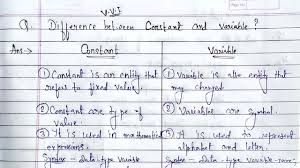 V.V.I
Q. Difference between Constant and variable?
Ans→ Constant Variable
① Constant is an entity that ① Variable is also entity that
refers to fixed value. may changed.
② Constant are type of ② Variables are symbol.
value.
③ It is used in mathematical ③ It is used to represent
expressions. alphabet and letter.
Syntax - data-type variable